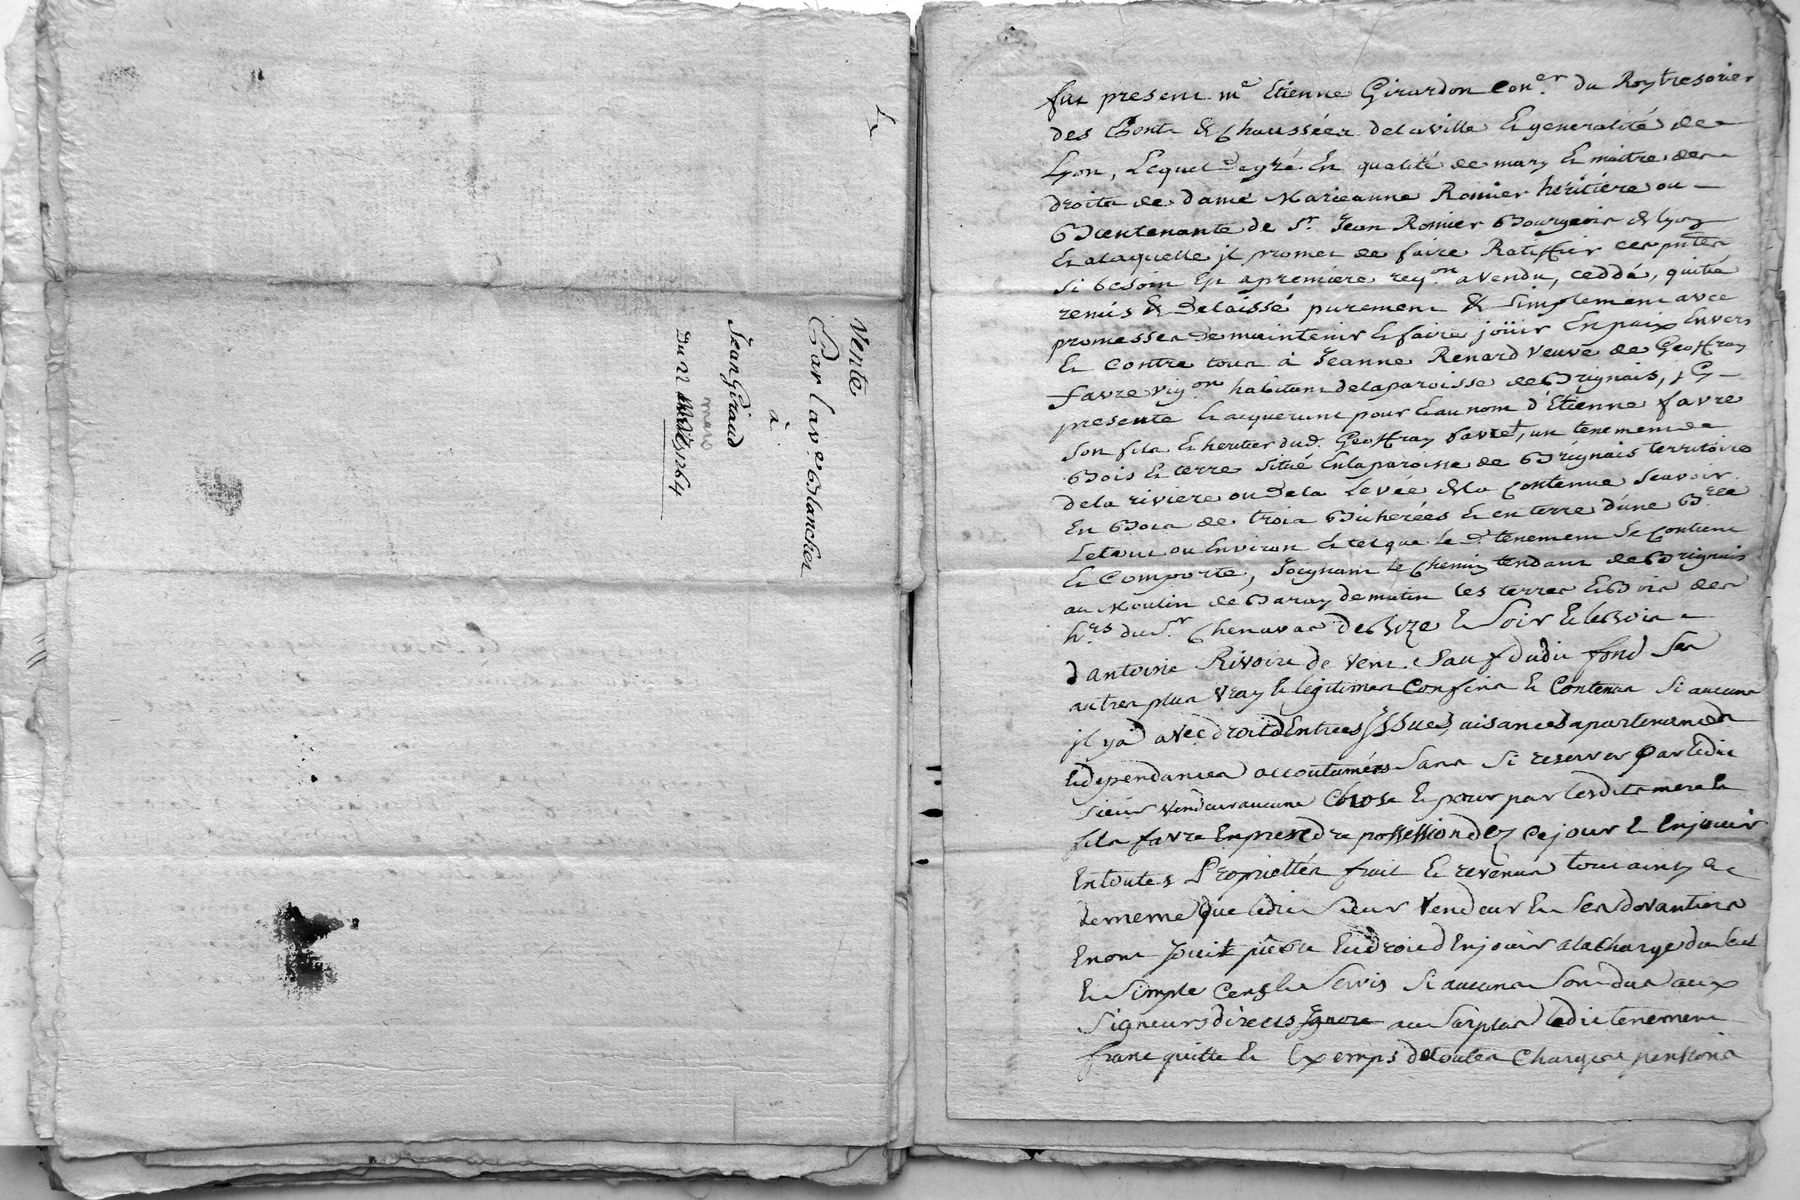 Vente
Par la v.e Blanchet
à
Jean Giraud
mars
Du 22 1764
fut present m.e Etienne Girardon Con.er du Roy tresorier
des Ponts & Chaussées de la ville et generalité de
Lyon, Lequel de gré En qualité de mary et maitre des
droits de dame Marieanne Romier heritiére ou
Bientenante de S.r Jean Romier Bourgeois de Lyon
Et a laquelle il promet de faire Ratiffier ces pntes
si besoin Est a premiére req.on a vendu, ceddé, quitté
remis & Delaissé purement & simplement avec
promesses de maintenir et faire joüir En paix Envers
et Contre tous à Jeanne Renard veuve de Geoffray
favre vig.on habitant de la paroisse de Brignais, jcy
presente et acquerant pour et au nom d'Etienne favre
son fils et heritier dud. Geoffray favre, un tenement de
Bois et terre situé En la paroisse de Brignais territoire
de la riviere ou de la Levée de la Contenue scavoir
En Bois de trois Bicherées et en terre d'une B.rée
Le tout ou Environ et tel que le d. tenement se Contient
et Comporte, Joignant le Chemin tendant de Brignais
au Moulin de Barray de matin les terres et Bois des
h.rs du S.r Chenavas de Bize et soir et le Bois
d'antoine Rivoire de vent. Sauf dudit fond ses
autres plus vray et legitimes Confins et Contenus si aucuns
il y a avec droits d'Entrées Issues, aisances apartenances
et dependances accoutumées sans si reserver par ledit
sieur vendeur aucune Chose et pour par lesdits mere et
fils favre En prendre possession dez ce jour et En jouir
En toutes Proprietés fruit et revenus tout ainsy et
de meme que ledit sieur Vendeur et ses devantiers
En ont Jouit pû et dû Et droit d'En jouir a la Charge du
et simple Cens et servis si aucuns sont dus aux
Signeurs directs au surplus ledit tenement
franc quitte et Exemps de toutes Charges pensions